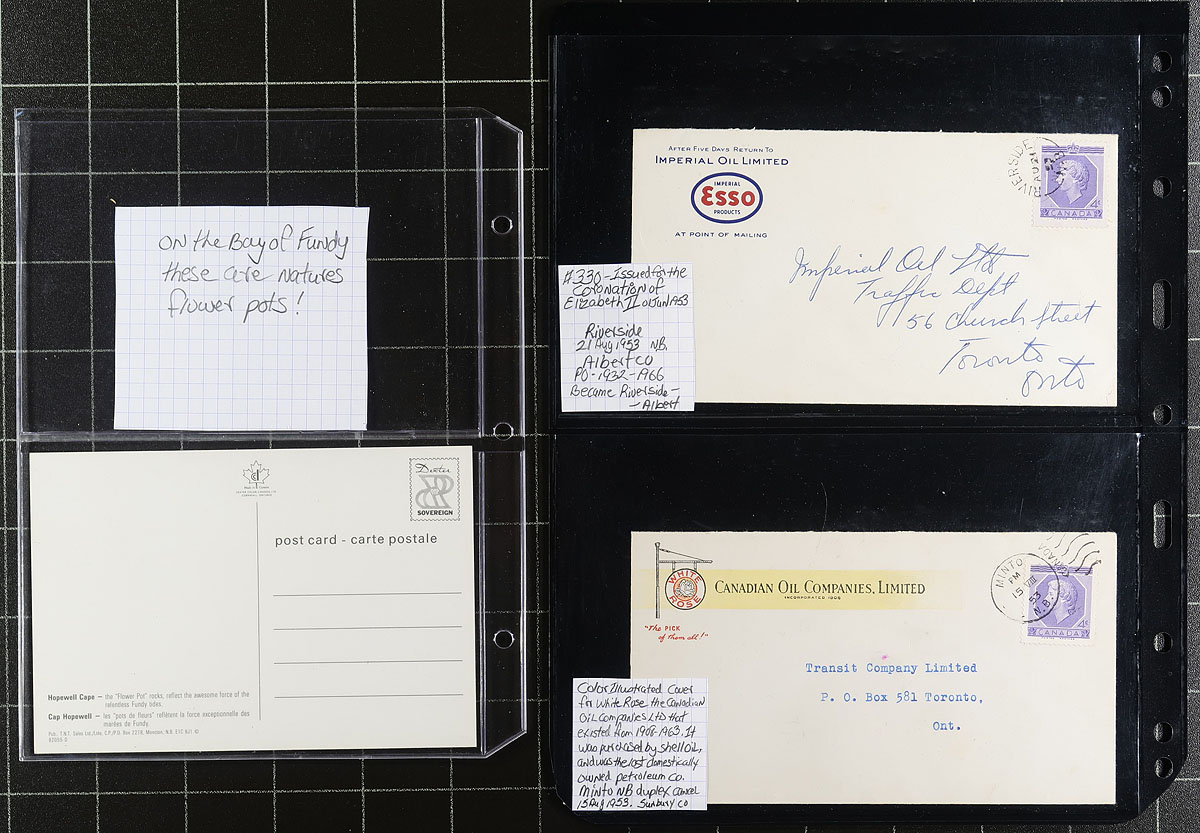 ON the Bay of Fundy
these are natures
flower pots!
Made in Canada
DEXTER COLOR CANADA LTD.
CORNWALL, ONTARIO
Dexter
SOVEREIGN
post card - carte postale
Hopewell Cape — the "Flower Pot" rocks, reflect the awesome force of the
relentless Fundy tides.
Cap Hopewell — les "pots de fleurs" reflètent la force exceptionnelle des
marées de Fundy.
Pub.: T.N.T. Sales Ltd./Ltée, C.P./P.O. Box 2218, Moncton, N.B.
AFTER FIVE DAYS RETURN TO
IMPERIAL OIL LIMITED
IMPERIAL
Esso
PRODUCTS
AT POINT OF MAILING
RIVERSIDE
AU 21
53
4¢
CANADA
Imperial Oil Ltd
Traffic Dept
56 Church Street
Toronto
Onto
#330 - Issued for the
Coronation of
Elizabeth II 01 Jun 1953
Riverside
21 Aug 1953 NB,
Albert Co
PO - 1932-1966
Became Riverside -
- Albert
WHITE
ROSE
CANADIAN OIL COMPANIES, LIMITED
INCORPORATED 1908
"The PICK
of them all!"
MINTO
PM
15 VIII
53
N.B.
CANADA
4¢
CANADA
Transit Company Limited
P. O. Box 581 Toronto,
Ont.
Color Illustrated Cover
for White Rose, the Canadian
Oil Companies Ltd that
existed from 1908-1963. It
was purchased by Shell Oil,
and was the last domestically
owned petroleum co.
Minto NB duplex cancel
15 Aug 1953. Sunbury Co